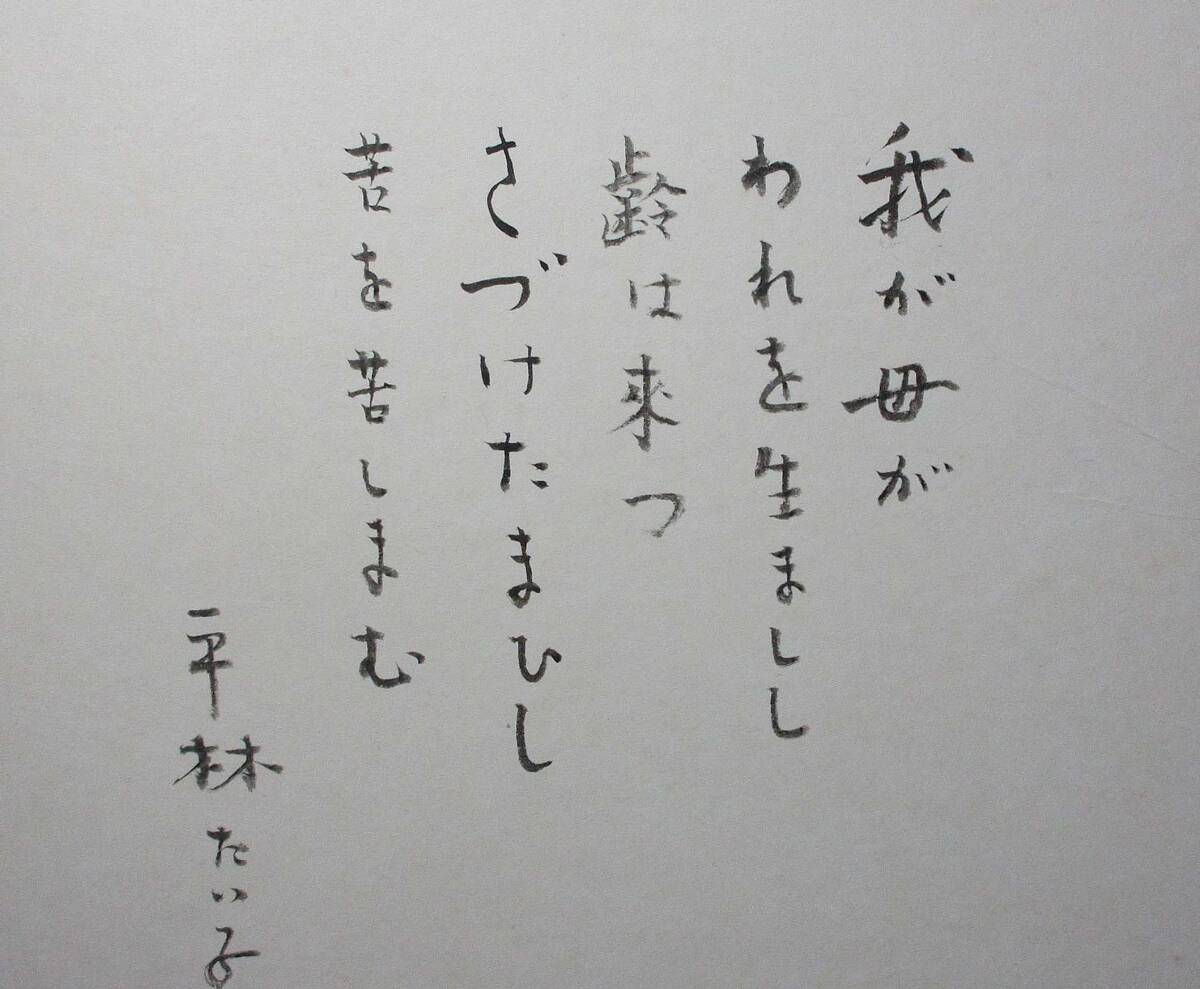 我が母が
われを生ましし
齢は来つ
さづけたまひし
苦を苦しまむ
平林たい子